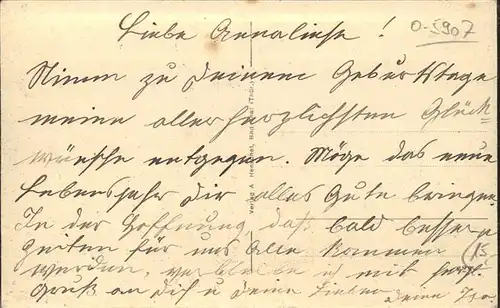 O-5907
Liebe Annaliese!
Nimm zu Deinem Geburtstage
meine allerherzlichsten Glück-
wünsche entgegen. Möge das neue
Lebensjahr Dir alles Gute bringen.
In der Hoffnung, daß bald bessere
Zeiten für uns Alle kommen
werden, verbleibe ich mit herzl.
Gruß an Dich u Deine Lieben Deine
15
Verlag A